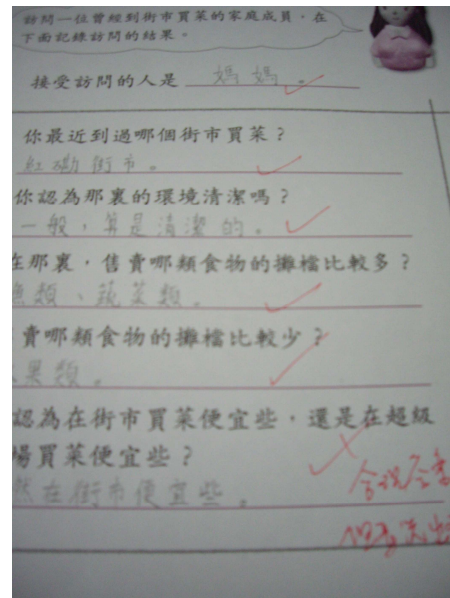 訪問一位曾經到街市買菜的家庭成員,在
下面記錄訪問的結果。
接受訪問的人是 媽媽。
你最近到過哪個街市買菜?
紅磡街市。
你認為那裏的環境清潔嗎?
一般,算是清潔的。
在那裏,售賣哪類食物的攤檔比較多?
魚類、蔬菜類。
賣哪類食物的攤檔比較少?
果類。
認為在街市買菜便宜些,還是在超級
場買菜便宜些?
然在街市便宜些。